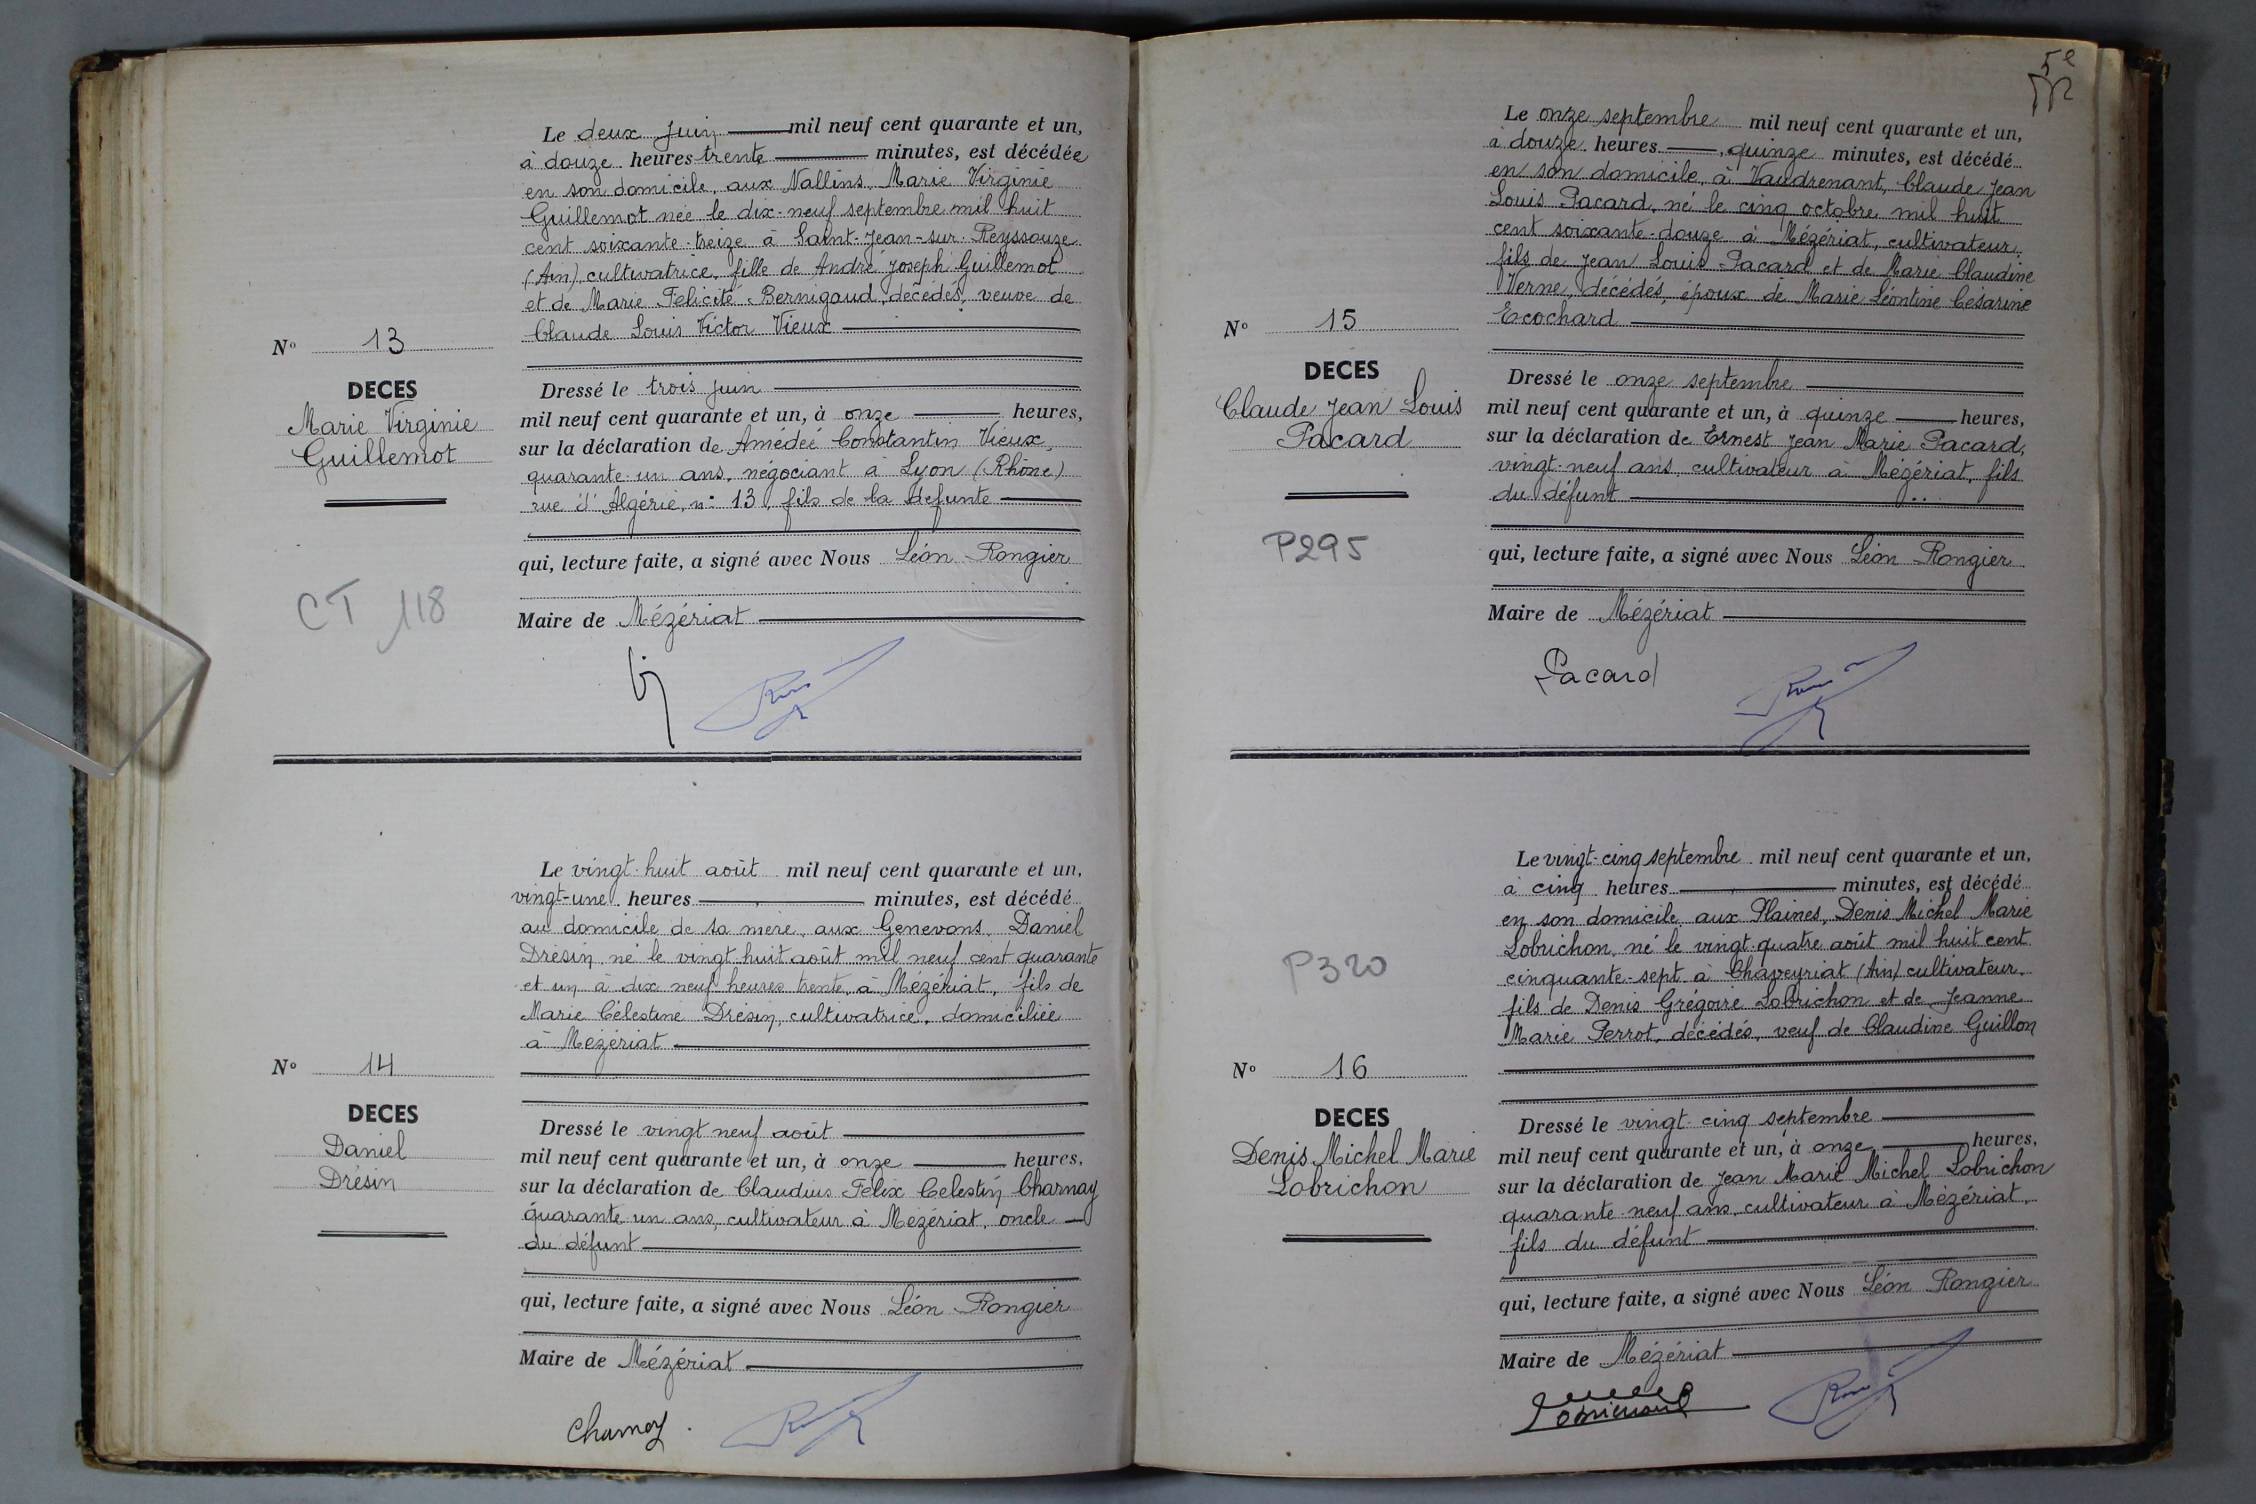 Le deux juin mil neuf cent quarante et un,
à douze heures trente minutes, est décédée
en son domicile, aux Vallins, Marie Virginie
Guillemot née le dix-neuf septembre mil huit
cent soixante-treize à Saint-Jean-sur-Reyssouze
(Ain), cultivatrice, fille de André Joseph Guillemot
et de Marie Félicité Bernigaud, décédés, veuve de
Claude Louis Victor Vieux
No 13
DECES
Marie Virginie
Guillemot
Dressé le trois juin
mil neuf cent quarante et un, à onze heures,
sur la déclaration de Amédée Constantin Vieux,
quarante-un ans, négociant à Lyon (Rhône)
rue d'Algérie, n: 13, fils de la défunte
qui, lecture faite, a signé avec Nous Léon Rongier
Maire de Mézériat
CT 118
Le vingt-huit août mil neuf cent quarante et un,
vingt-une heures minutes, est décédé
au domicile de sa mère, aux Genevons, Daniel
Drésin, né le vingt-huit août mil neuf cent quarante
et un à dix neuf heures trente, à Mézériat, fils de
Marie Célestine Drésin, cultivatrice, domiciliée
à Mézériat
No 14
DECES
Daniel
Drésin
Dressé le vingt neuf août
mil neuf cent quarante et un, à onze heures,
sur la déclaration de Claudius Félix Célestin Charnay
quarante un ans, cultivateur à Mézériat, oncle
du défunt
qui, lecture faite, a signé avec Nous Léon Rongier
Maire de Mézériat
Charnay
5e
Le onze septembre mil neuf cent quarante et un,
à douze heures quinze minutes, est décédé
en son domicile, à Vaudrenant, Claude Jean
Louis Pacard, né le cinq octobre mil huit
cent soixante-douze à Mézériat, cultivateur,
fils de Jean Louis Pacard et de Marie Claudine
Verne, décédés, époux de Marie Léontine Césarine
Ecochard
No 15
DECES
Claude Jean Louis
Pacard
Dressé le onze septembre
mil neuf cent quarante et un, à quinze heures,
sur la déclaration de Ernest Jean Marie Pacard,
vingt-neuf ans, cultivateur à Mézériat, fils
du défunt
qui, lecture faite, a signé avec Nous Léon Rongier
Maire de Mézériat
P295
Pacard
Le vingt-cinq septembre mil neuf cent quarante et un,
à cinq heures minutes, est décédé
en son domicile, aux Plaines, Denis Michel Marie
Lobrichon, né le vingt-quatre août mil huit cent
cinquante-sept à Chaveyriat (Ain) cultivateur,
fils de Denis Grégoire Lobrichon et de Jeanne
Marie Perrot, décédés, veuf de Claudine Guillon
P320
No 16
DECES
Denis Michel Marie
Lobrichon
Dressé le vingt-cinq septembre
mil neuf cent quarante et un, à onze heures,
sur la déclaration de Jean Marie Michel Lobrichon
quarante-neuf ans, cultivateur à Mézériat,
fils du défunt
qui, lecture faite, a signé avec Nous Léon Rongier
Maire de Mézériat
Lobrichon